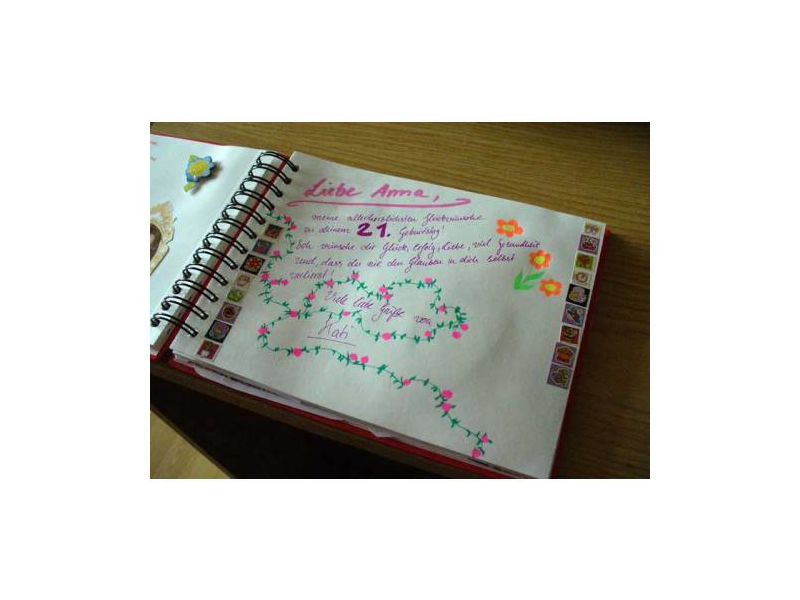 Liebe Anna,
meine allerherzlichsten Glückwünsche
zu deinem 21. Geburtstag!
Ich wünsche dir Glück, Erfolg, Liebe, viel Gesundheit
und, dass du nie den Glauben in dich selbst
verlierst!
Viele liebe Grüße von
Kati